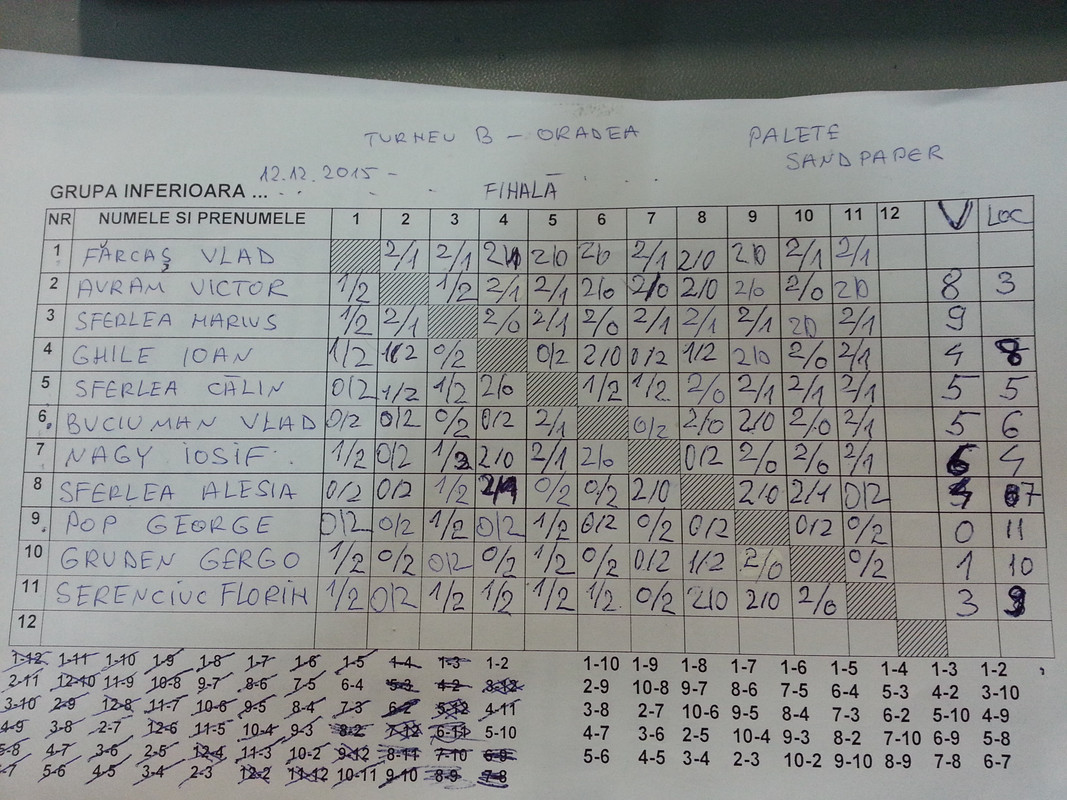 TURNEU B - ORADEA PALETE
SANDPAPER
12.12.2015 -
GRUPA INFERIOARA ... FIHALĂ
NR NUMELE SI PRENUMELE 1 2 3 4 5 6 7 8 9 10 11 12 V LOC
1 FĂRCAȘ VLAD 2/1 2/1 2/0 2/0 2/1 2/0 2/0 2/1 2/1
2 AVRAM VICTOR 1/2 1/2 2/1 2/1 2/0 2/0 2/0 2/0 2/0 2/0 8 3
3 SFERLEA MARIUS 1/2 2/1 2/0 2/1 2/0 2/1 2/1 2/1 2/0 2/1 9
4 GHILE IOAN 1/2 1/2 0/2 0/2 2/0 0/2 1/2 2/0 2/0 2/1 4 8
5 SFERLEA CĂLIN 0/2 1/2 1/2 2/0 1/2 1/2 2/0 2/1 2/1 2/1 5 5
6 BUCIUMAN VLAD 0/2 0/2 0/2 0/2 2/1 0/2 2/0 2/0 2/0 2/1 5 6
7 NAGY IOSIF 1/2 0/2 1/2 2/0 2/1 2/0 0/2 2/0 2/0 2/1 6 4
8 SFERLEA ALESIA 0/2 0/2 1/2 2/1 0/2 0/2 2/0 2/0 2/1 0/2 7
9 POP GEORGE 0/2 0/2 1/2 0/2 1/2 0/2 0/2 0/2 0/2 0/2 0 11
10 GRUDEN GERGO 1/2 0/2 0/2 0/2 1/2 0/2 0/2 1/2 2/0 0/2 1 10
11 SERENCIUC FLORIH 1/2 0/2 1/2 1/2 1/2 1/2 0/2 2/0 2/0 2/0 3 9
12
1-12 1-11 1-10 1-9 1-8 1-7 1-6 1-5 1-4 1-3 1-2 1-10 1-9 1-8 1-7 1-6 1-5 1-4 1-3 1-2
2-11 12-10 11-9 10-8 9-7 8-6 7-5 6-4 5-3 4-2 3-12 2-9 10-8 9-7 8-6 7-5 6-4 5-3 4-2 3-10
3-10 2-9 12-8 11-7 10-6 9-5 8-4 7-3 6-2 5-12 4-11 3-8 2-7 10-6 9-5 8-4 7-3 6-2 5-10 4-9
4-9 3-8 2-7 12-6 11-5 10-4 9-3 8-2 7-12 6-11 5-10 4-7 3-6 2-5 10-4 9-3 8-2 7-10 6-9 5-8
5-8 4-7 3-6 2-5 12-4 11-3 10-2 9-12 8-11 7-10 6-9 5-6 4-5 3-4 2-3 10-2 9-10 8-9 7-8 6-7
6-7 5-6 4-5 3-4 2-3 12-2 11-12 10-11 9-10 8-9 7-8